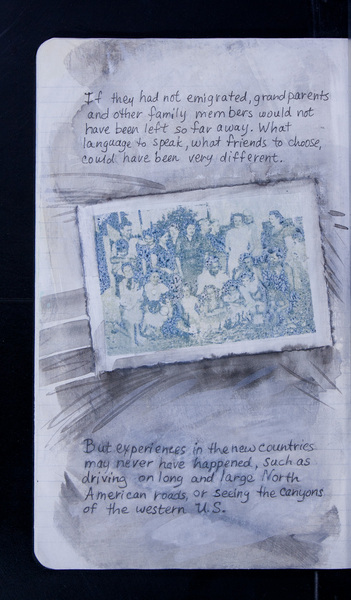 If they had not emigrated, grandparents
and other family members would not
have been left so far away. What
language to speak, what friends to choose,
could have been very different.
But experiences in the new countries
may never have happened, such as
driving on long and large North
American roads, or seeing the canyons
of the western U.S.